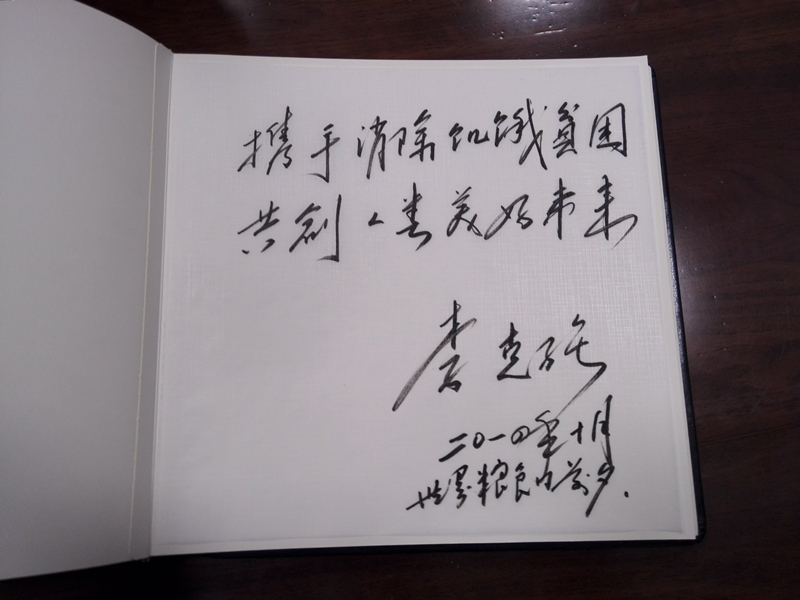 携手消除饥饿貧困
共创人类美好未来
李克强
二〇一四年十月
世界粮食日前夕.